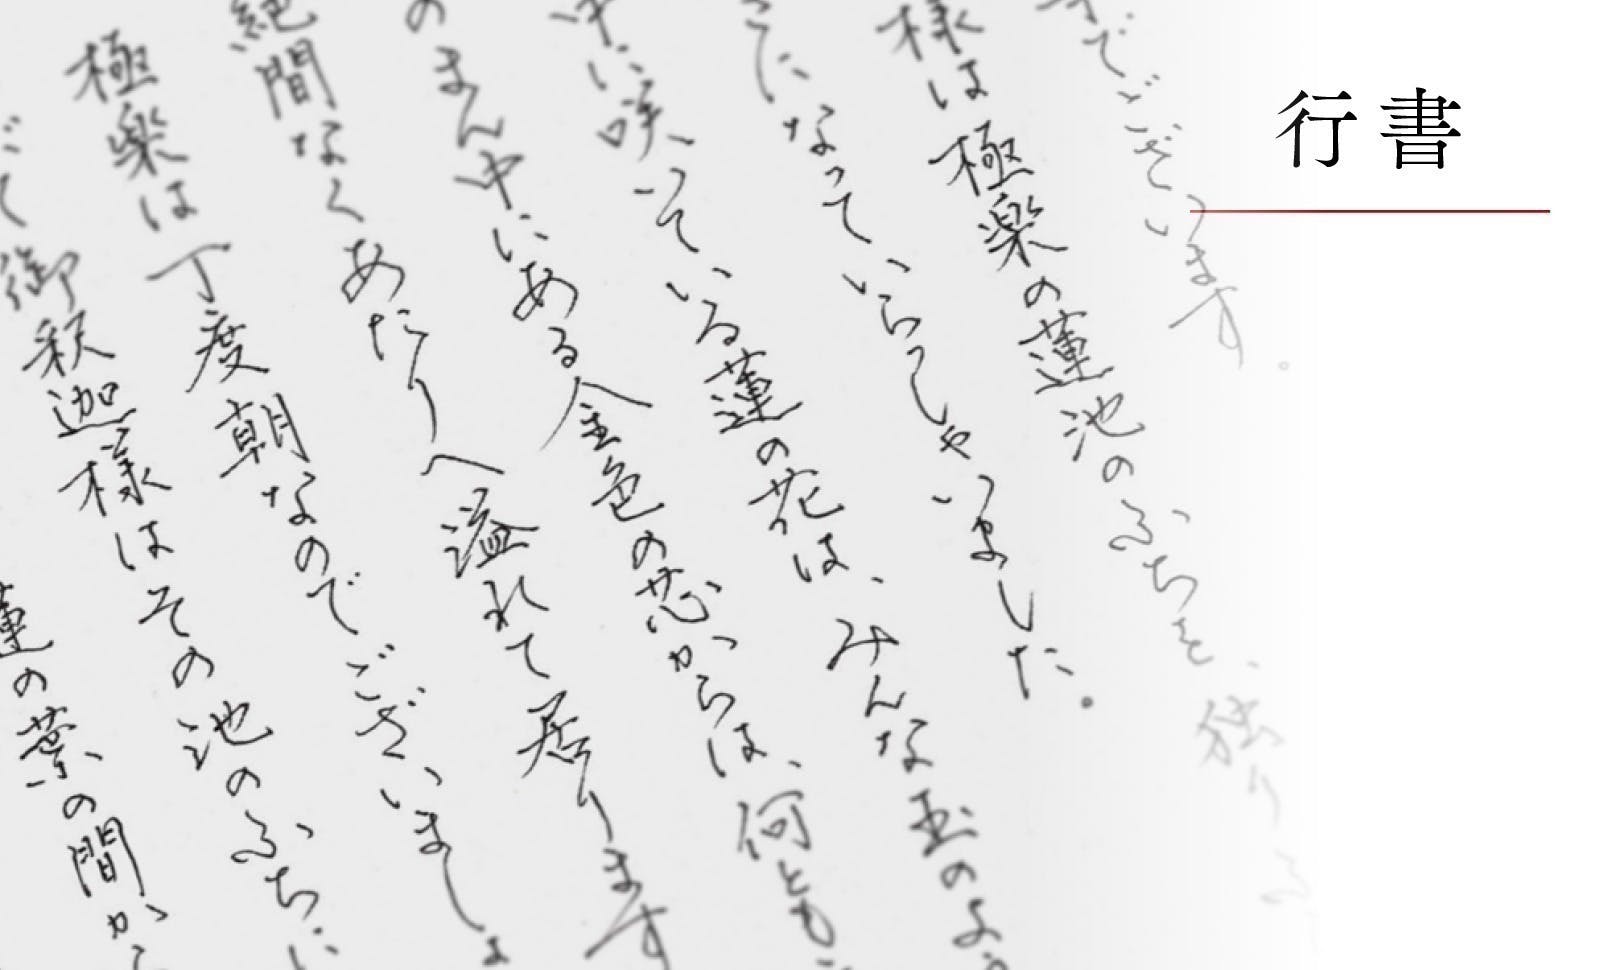 行書
でございます。
様は極楽の蓮池のふちを、独りふ
になっていらっしゃいました。
中に咲いている蓮の花は、みんな玉のよ
のまん中にある金色の芯からは、何とも
絶間なくあたりへ溢れて居ります
極楽は丁度朝なのでございましょ
て御釈迦様はその池のふちに
蓮の葉の間か